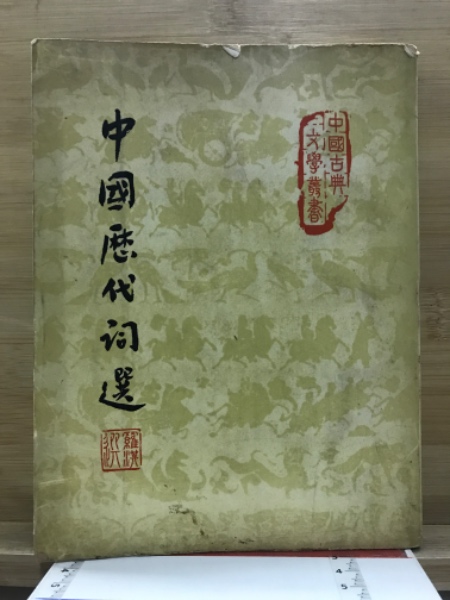 中國古典
文學叢書
中國歷代詞選